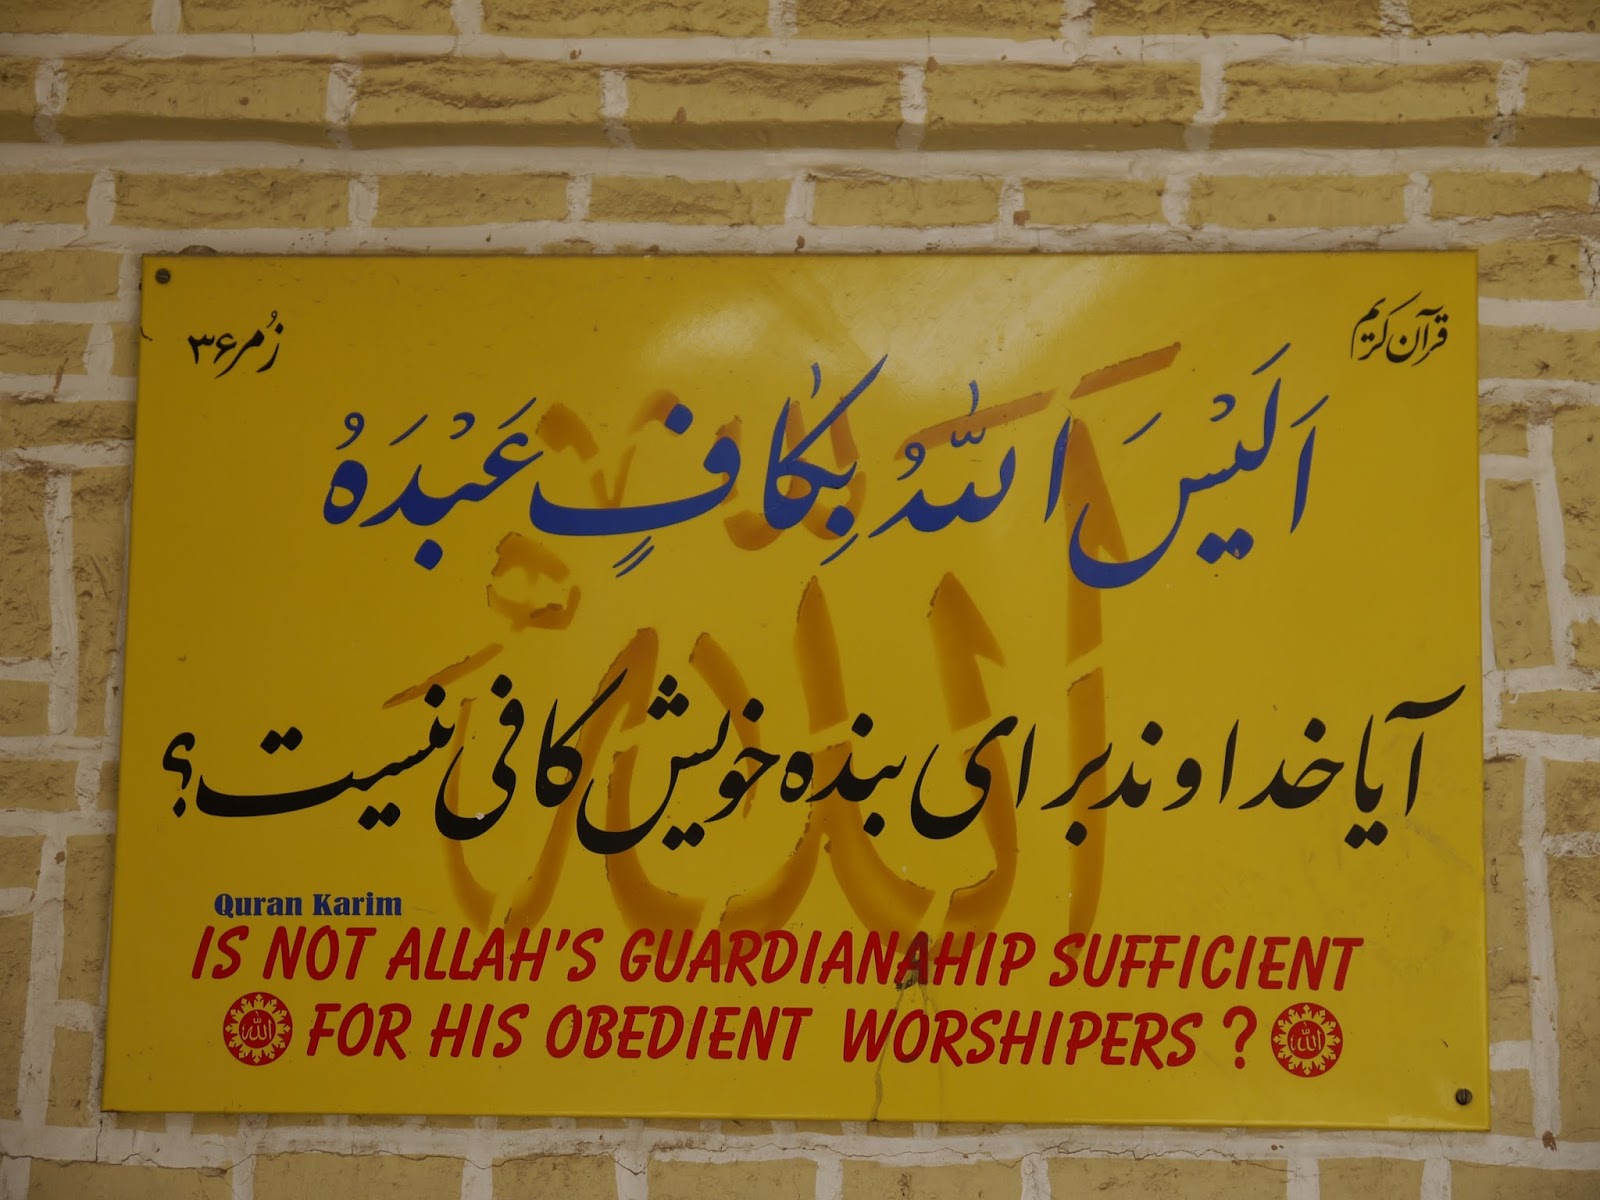 قرآن کریم
زُمر ۳۶
اَلَیْسَ اللّٰهُ بِکٰافٍ عَبْدَهُ
آیا خداوند برای بنده خویش کافی نیست؟
Quran Karim
IS NOT ALLAH'S GUARDIANAHIP SUFFICIENT
الله FOR HIS OBEDIENT WORSHIPERS ? الله
الله